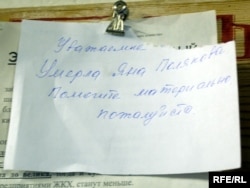 Уважаемые
Умерла Яна Полякова
Помогите материально
пожалуйста
ЖКХ, станут меньше.
RFE/RL